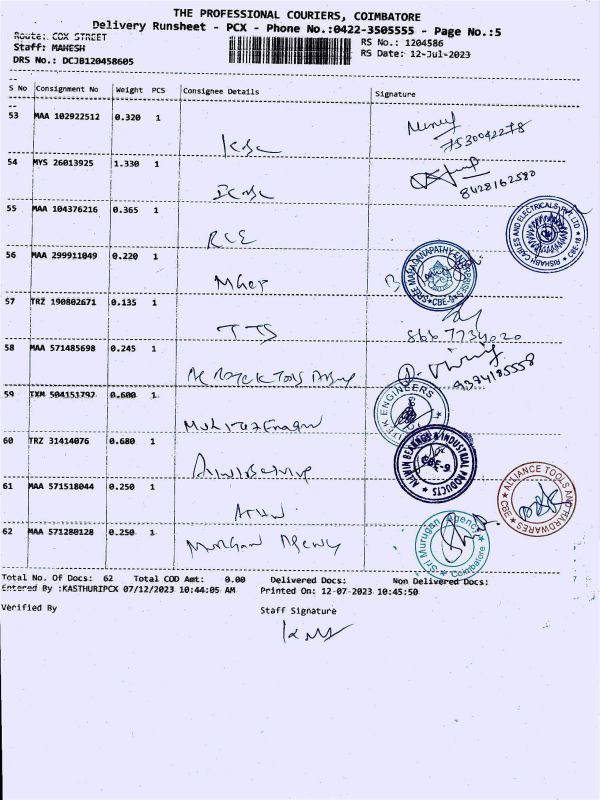 THE PROFESSIONAL COURIERS, COIMBATORE
Delivery Runsheet - PCX - Phone No.:0422-3505555 - Page No.:5
Route: COX STREET
RS No.: 1204586
Staff: MAHESH
RS Date: 12-Jul-2023
DRS No.: DCJB120458605
S No Consignment No Weight PCS Consignee Details Signature
53 MAA 102922512 0.320 1
7530042278
54 MYS 26013925 1.330 1
8428162580
55 MAA 104376216 0.365 1
RCE
RISHABH CABLES AND ELECTRICALS PVT. LTD ★ CBE-18 ★
56 MAA 299911049 0.220 1
SREE MAHADANAPATHY ENTERPRISES ★ CBE-9 ★
57 TRZ 190802671 0.135 1
TTS
58 MAA 571485698 0.245 1
9374185558
59 TXM 504151792 0.600 1
ENGINEERS
60 TRZ 31414076 0.680 1
ALLWIN BEARINGS & INDUSTRIAL PRODUCTS CBE-9
61 MAA 571518044 0.250 1
ALLIANCE TOOLS AND HARDWARES ★ CBE ★
62 MAA 571280128 0.250 1
Murugan Agency
Sri Murugan Agency ★ Coimbatore ★
Total No. Of Docs: 62 Total COD Amt: 0.00 Delivered Docs: Non Delivered Docs:
Entered By :KASTHURIPCX 07/12/2023 10:44:05 AM Printed On: 12-07-2023 10:45:50
Verified By Staff Signature